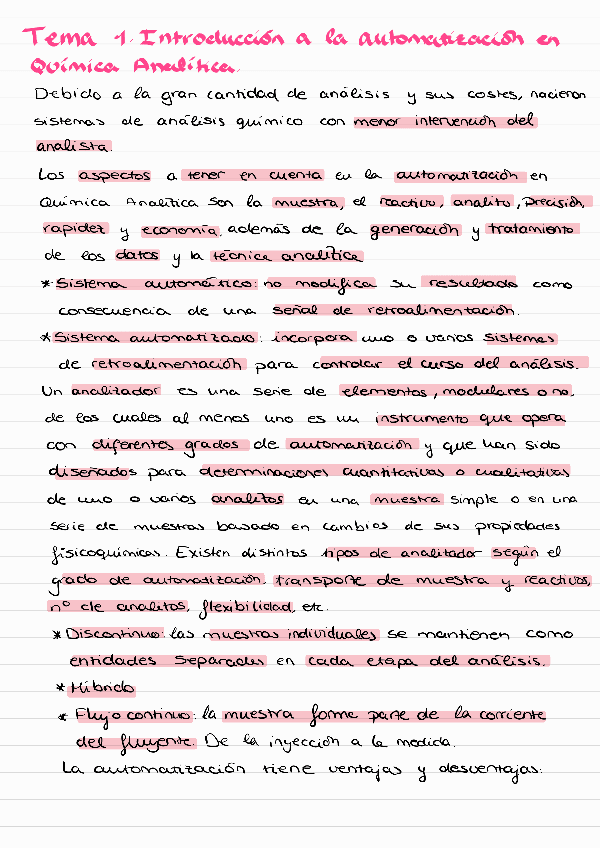 Tema 1. Introducción a la automatización en
Química Analítica.
Debido a la gran cantidad de análisis y sus costes, nacieron
sistemas de análisis químico con menor intervención del
analista.
Los aspectos a tener en cuenta en la automatización en
Química Analítica son la muestra, el reactivo, analito, precisión,
rapidez y economía, además de la generación y tratamiento
de los datos y la técnica analítica
* Sistema automático: no modifica su resultado como
consecuencia de una señal de retroalimentación.
* Sistema automatizado: incorpora uno o varios sistemas
de retroalimentación para controlar el curso del análisis.
Un analizador es una serie de elementos, modulares o no,
de los cuales al menos uno es un instrumento que opera
con diferentes grados de automatización y que han sido
diseñados para determinaciones cuantitativas o cualitativas
de uno o varios analitos en una muestra simple o en una
serie de muestras basado en cambios de sus propiedades
fisicoquímicas. Existen distintos tipos de analizador según el
grado de automatización, transporte de muestra y reactivos,
nº de analitos, flexibilidad, etc.
* Discontinuo: las muestras individuales se mantienen como
entidades separadas en cada etapa del análisis.
* Híbrido
* Flujo continuo: la muestra forma parte de la corriente
del fluyente. De la inyección a la medida.
La automatización tiene ventajas y desventajas: